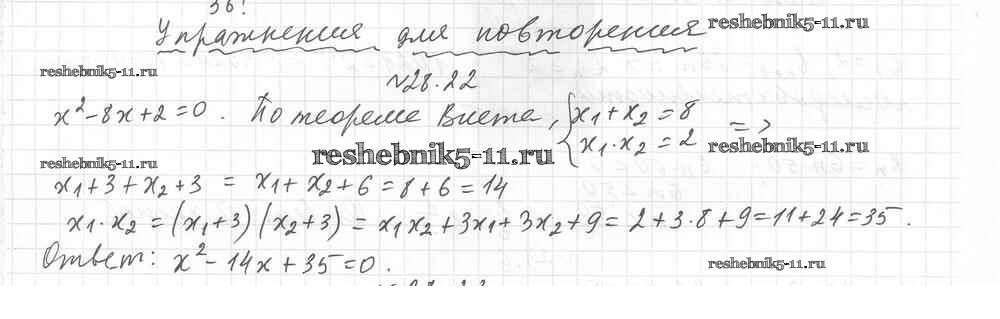 36!
Упражнения для повторения reshebnik5-11.ru
reshebnik5-11.ru
№28.22
x² - 8x + 2 = 0. По теореме Виета, { x₁ + x₂ = 8
x₁ · x₂ = 2 => reshebnik5-11.ru
reshebnik5-11.ru reshebnik5-11.ru
x₁ + 3 + x₂ + 3 = x₁ + x₂ + 6 = 8 + 6 = 14
x₁ · x₂ = (x₁ + 3)(x₂ + 3) = x₁x₂ + 3x₁ + 3x₂ + 9 = 2 + 3 · 8 + 9 = 11 + 24 = 35.
Ответ: x² - 14x + 35 = 0.
reshebnik5-11.ru